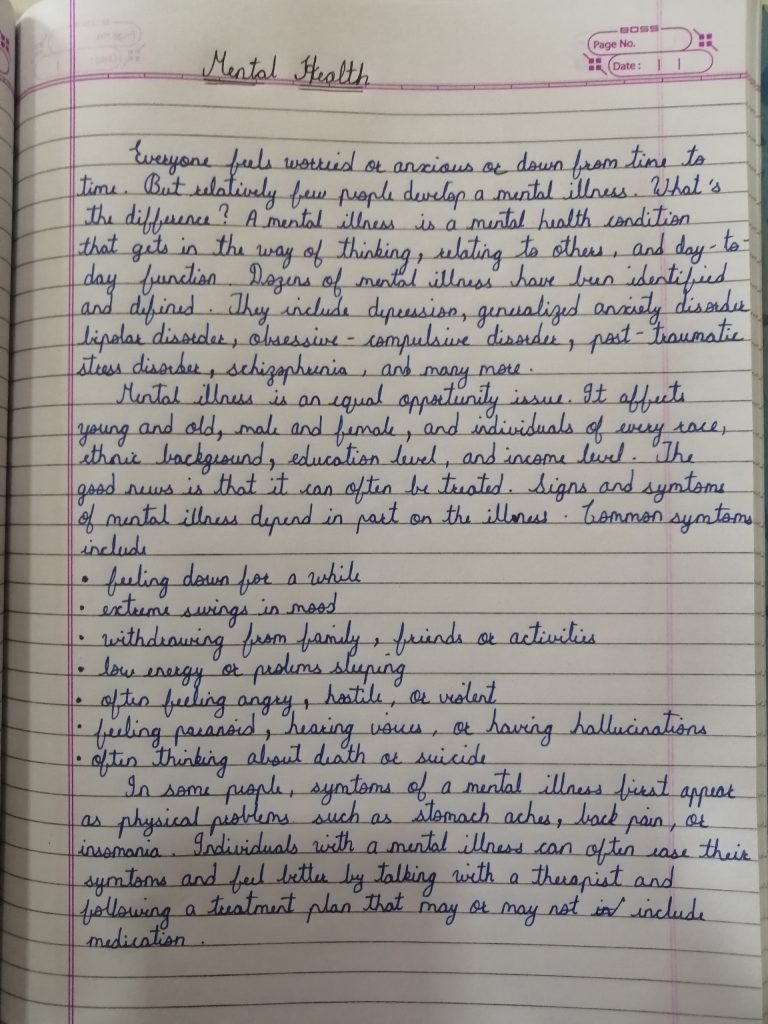 BOSS
Page No.
Date :
Mental Health
Everyone feels worried or anxious or down from time to
time. But relatively few people develop a mental illness. What's
the difference? A mental illness is a mental health condition
that gets in the way of thinking, relating to others, and day-to-
day function. Dozens of mental illness have been identified
and defined. They include depression, generalized anxiety disorder
bipolar disorder, obsessive-compulsive disorder, post-traumatic
stress disorder, schizophrenia, and many more.
Mental illness is an equal opportunity issue. It affects
young and old, male and female, and individuals of every race,
ethnic background, education level, and income level. The
good news is that it can often be treated. Signs and symtoms
of mental illness depend in part on the illness. Common symtoms
include
• feeling down for a while
• extreme swings in mood
• withdrawing from family, friends or activities
• low energy or prolems sleeping
• often feeling angry, hostile, or violent
• feeling paranoid, hearing voices, or having hallucinations
• often thinking about death or suicide
In some people, symtoms of a mental illness first appear
as physical problems such as stomach aches, back pain, or
insomania. Individuals with a mental illness can often ease their
symtoms and feel better by talking with a therapist and
following a treatment plan that may or may not include
medication.